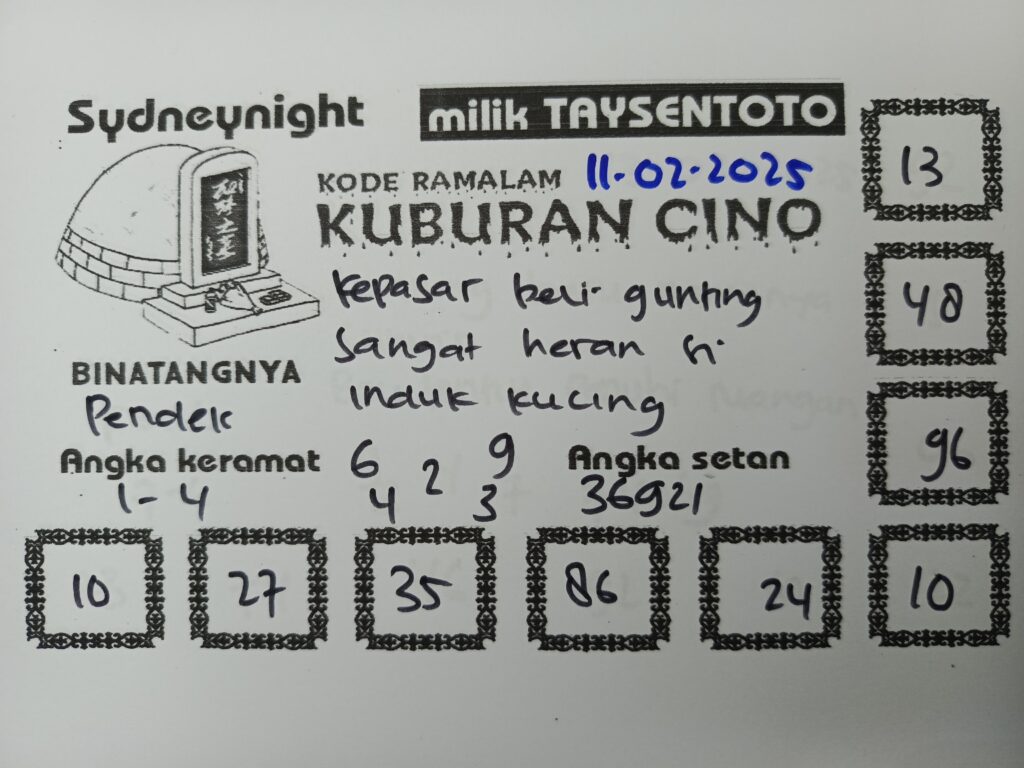 Sydneynight
milik TAYSENTOTO
13
KODE RAMALAM 11-02-2025
KUBURAN CINO
48
kepasar beli gunting
sangat heran si
induk kucing
BINATANGNYA
Pendek
96
Angka keramat
1-4
6 2 9
4 3
Angka setan
36921
10 27 35 86 24 10